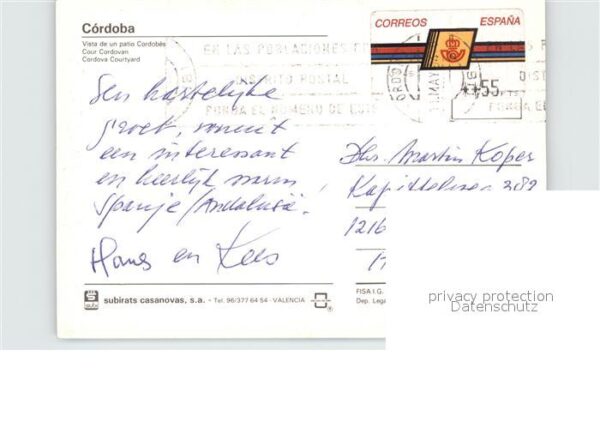 Córdoba
Vista de un patio Cordobés
Cour Cordovan
Cordova Courtyard
CORREOS ESPAÑA
EN LAS POBLACIONES
DISTRITO POSTAL
PONGA EL NUMERO DE
MAY
**55 PTS
Een hartelijke
groet, vanuit
een interessant
en heerlijk warm
Spanje/Andalusië.
Hans en Kees
Dhr. Martin Koper
Kapittelweg 382
1216
subirats casanovas, s.a. - Tel. 96/377 64 54 - VALENCIA
FISA I.G.
Dep. Lega
privacy protection
Datenschutz